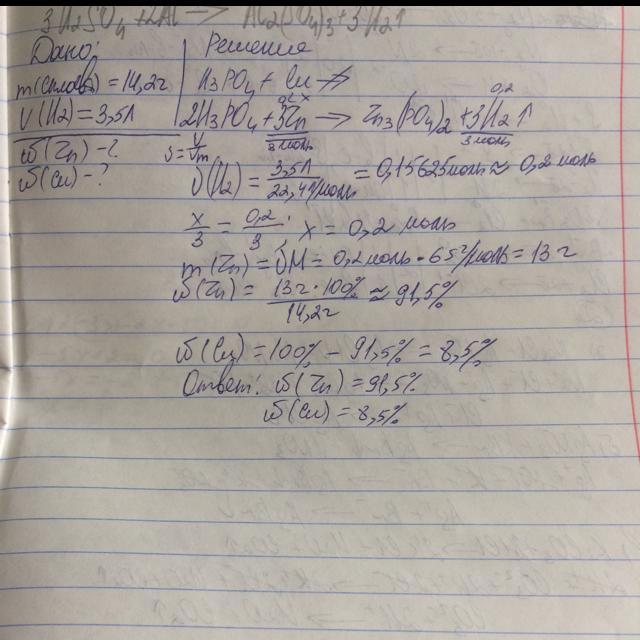 3H2SO4 + 2Al → Al2(SO4)3 + 3H2↑
Дано:
m(сплава) = 14,2г
V(H2) = 3,5л
ω(Zn) - ?
ω(Cu) - ?
Решение
H3PO4 + Cu ↛
0,2 x 0,2
2H3PO4 + 3Zn → Zn3(PO4)2 + 3H2↑
3 моль 3 моль
ν = V/Vm
ν(H2) = 3,5л / 22,4л/моль = 0,15625моль ≈ 0,2 моль
x/3 = 0,2/3 · x = 0,2 моль
m(Zn) = νM = 0,2 моль · 65г/моль = 13 г
ω(Zn) = 13г · 100% / 14,2г ≈ 91,5%
ω(Cu) = 100% - 91,5% = 8,5%
Ответ: ω(Zn) = 91,5%
ω(Cu) = 8,5%